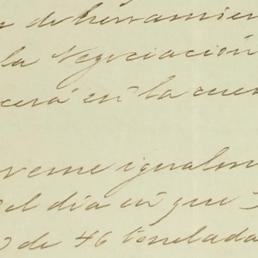 de herramien
la Negociación
cerá en la cuen
verme igualm
el día en que
de 46 tonelada